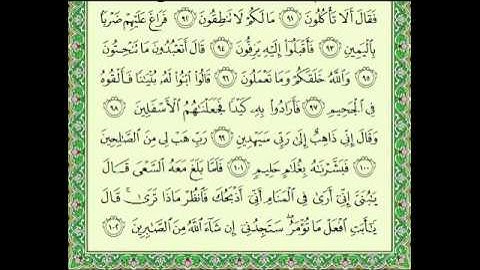 فَقَالَ أَلَا تَأْكُلُونَ ﴿٩١﴾ مَا لَكُمْ لَا تَنطِقُونَ ﴿٩٢﴾ فَرَاغَ عَلَيْهِمْ ضَرْبًا
بِالْيَمِينِ ﴿٩٣﴾ فَأَقْبَلُوا إِلَيْهِ يَزِفُّونَ ﴿٩٤﴾ قَالَ أَتَعْبُدُونَ مَا تَنْحِتُونَ
﴿٩٥﴾ وَاللَّهُ خَلَقَكُمْ وَمَا تَعْمَلُونَ ﴿٩٦﴾ قَالُوا ابْنُوا لَهُ بُنْيَانًا فَأَلْقُوهُ
فِي الْجَحِيمِ ﴿٩٧﴾ فَأَرَادُوا بِهِ كَيْدًا فَجَعَلْنَاهُمُ الْأَسْفَلِينَ ﴿٩٨﴾
وَقَالَ إِنِّي ذَاهِبٌ إِلَى رَبِّي سَيَهْدِينِ ﴿٩٩﴾ رَبِّ هَبْ لِي مِنَ الصَّالِحِينَ
﴿١٠٠﴾ فَبَشَّرْنَاهُ بِغُلَامٍ حَلِيمٍ ﴿١٠١﴾ فَلَمَّا بَلَغَ مَعَهُ السَّعْيَ قَالَ
يَا بُنَيَّ إِنِّي أَرَى فِي الْمَنَامِ أَنِّي أَذْبَحُكَ فَانظُرْ مَاذَا تَرَى ۚ قَالَ
يَا أَبَتِ افْعَلْ مَا تُؤْمَرُ ۖ سَتَجِدُنِي إِن شَاءَ اللَّهُ مِنَ الصَّابِرِينَ ﴿١٠٢﴾